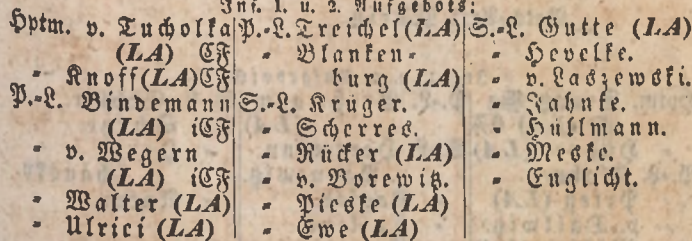 Inf. 1. u. 2. Aufgebots:
Hptm. v. Tucholka
(LA) CF
- Knoff (LA) CF
P.-L. Bindemann
(LA) iCF
- v. Wegern
(LA) iCF
- Walter (LA)
- Ulrici (LA)
P.-L. Treichel (LA)
- Blanken-
burg (LA)
S.-L. Krüger.
- Scherres.
- Rücker (LA)
- v. Borewitz.
- Pieske (LA)
- Ewe (LA)
S.-L. Gutte (LA)
- Hevelke.
- v. Laszewski.
- Jahnke.
- Hüllmann.
- Meske.
- Englicht.